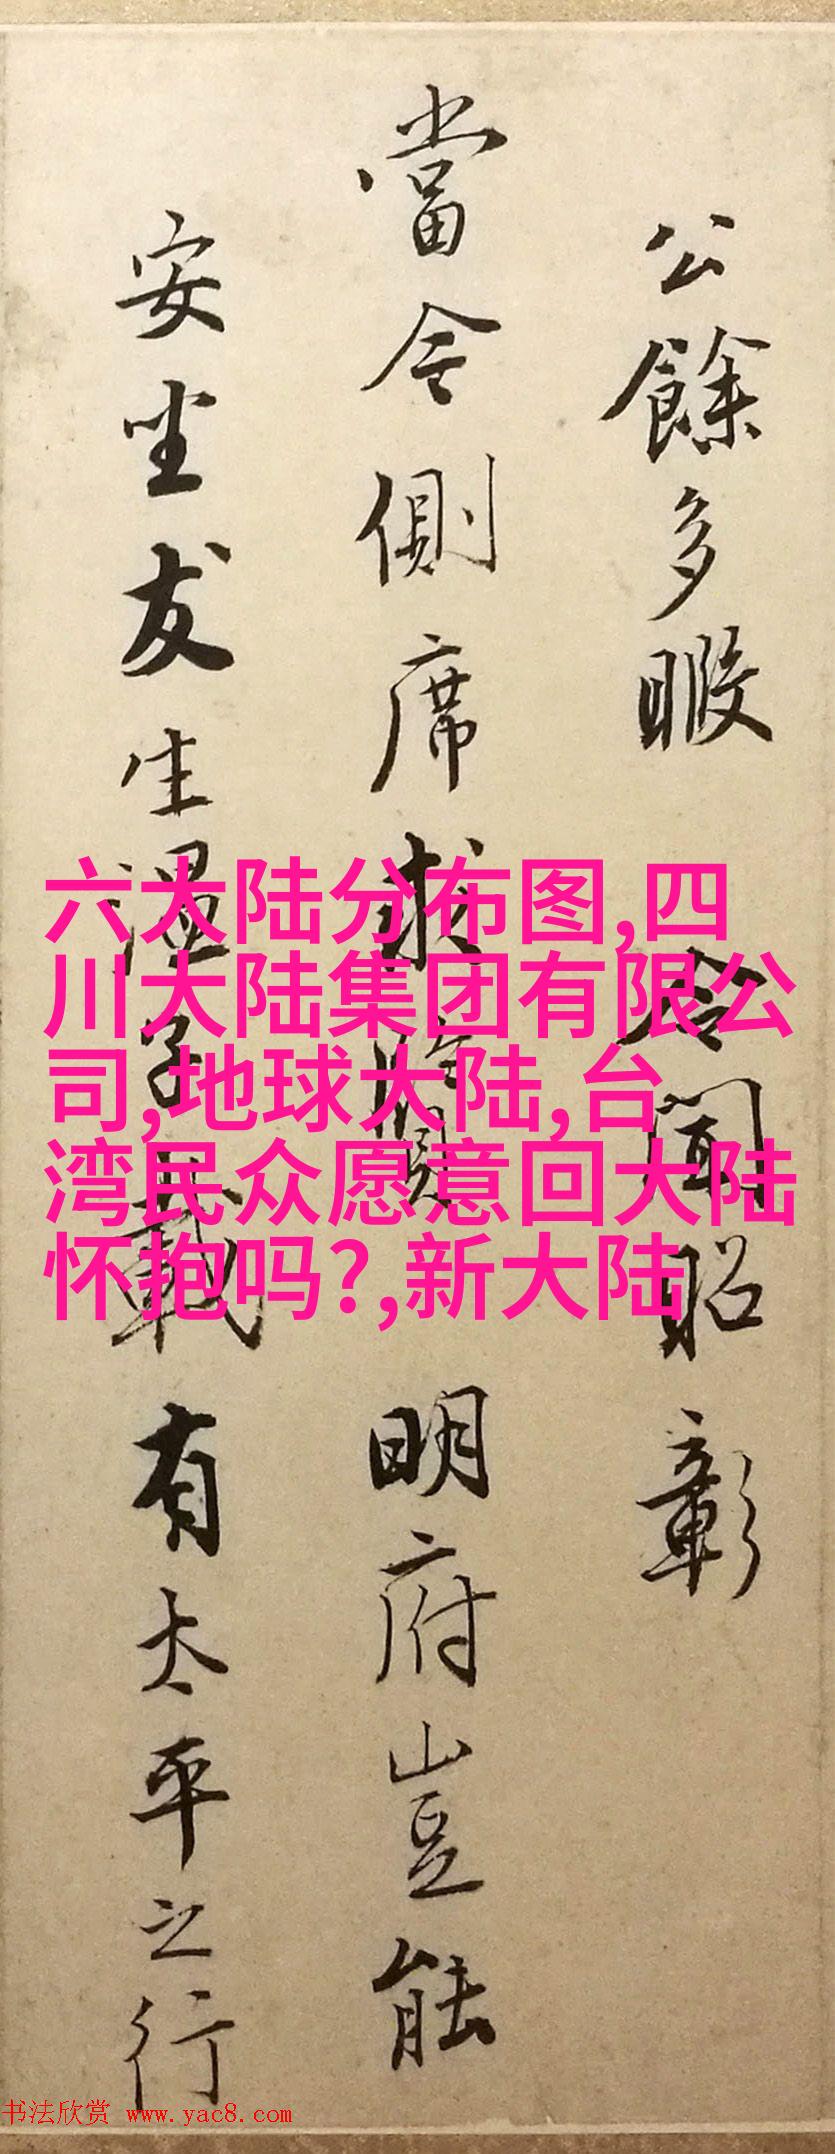 公餘多暇 令聞昭彰
當今側席求賢明府豈能
安坐友生温子載有太平之行
六大陆分布图,四
川大陆集团有限公
司,地球大陆,台
湾民众愿意回大陆
怀抱吗?,新大陆
书法欣赏 www.yac8.com